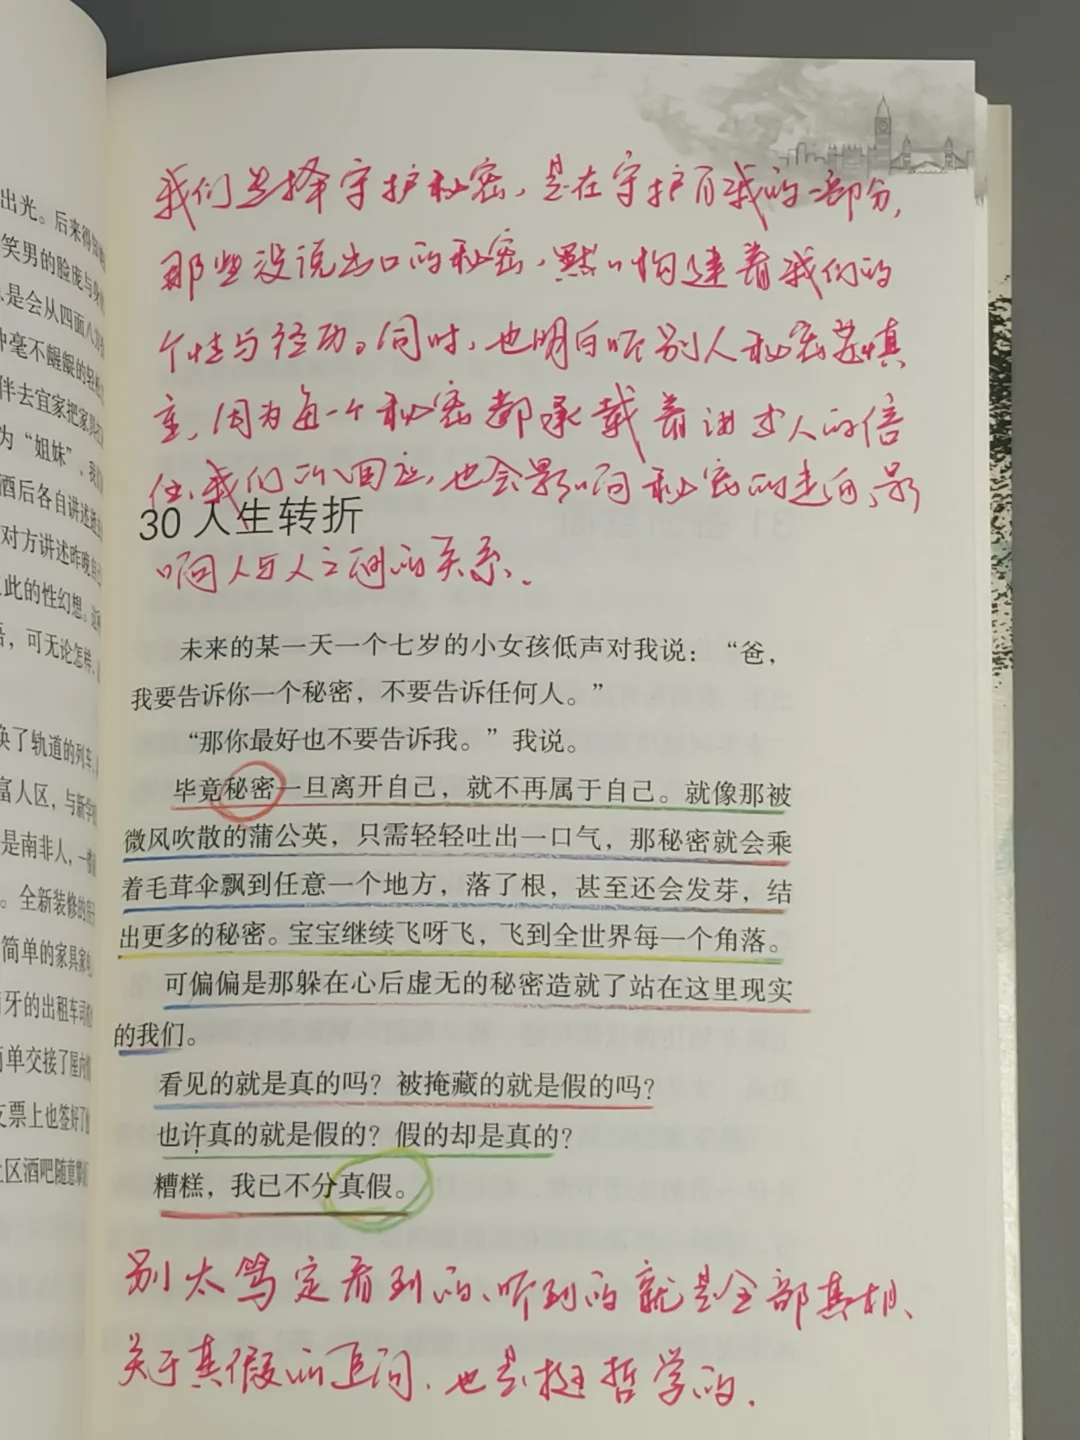 我们选择守护秘密，是在守护自我的一部分，
那些没说出口的秘密，默默构建着我们的
个性与经历。同时，也明白听别人秘密花慎
重，因为每一个秘密都承载着讲述人的信
任，我们的回应，也会影响秘密的走向，影
30 人生转折
响人与人之间的关系。
未来的某一天一个七岁的小女孩低声对我说：“爸，
我要告诉你一个秘密，不要告诉任何人。”
“那你最好也不要告诉我。”我说。
毕竟秘密一旦离开自己，就不再属于自己。就像那被
微风吹散的蒲公英，只需轻轻吐出一口气，那秘密就会乘
着毛茸伞飘到任意一个地方，落了根，甚至还会发芽，结
出更多的秘密。宝宝继续飞呀飞，飞到全世界每一个角落。
可偏偏是那躲在心后虚无的秘密造就了站在这里现实
的我们。
看见的就是真的吗？被掩藏的就是假的吗？
也许真的就是假的？假的却是真的？
糟糕，我已不分真假。
别太笃定看到的、听到的就是全部真相、
关于真假的追问，也是挺哲学的。
出光。后来得知
笑男的脸庞与
是会从四面八方
毫不龌龊的轻
伴去宜家把家具
为“姐妹”，我
酒后各自讲述
对方讲述昨晚
此的性幻想。
，可无论怎样、
换了轨道的列车、
富人区，与新学
是南非人，一
。全新装修的
简单的家具家
牙的出租车司
单交接了屋内
支票上也签好了
区酒吧随意